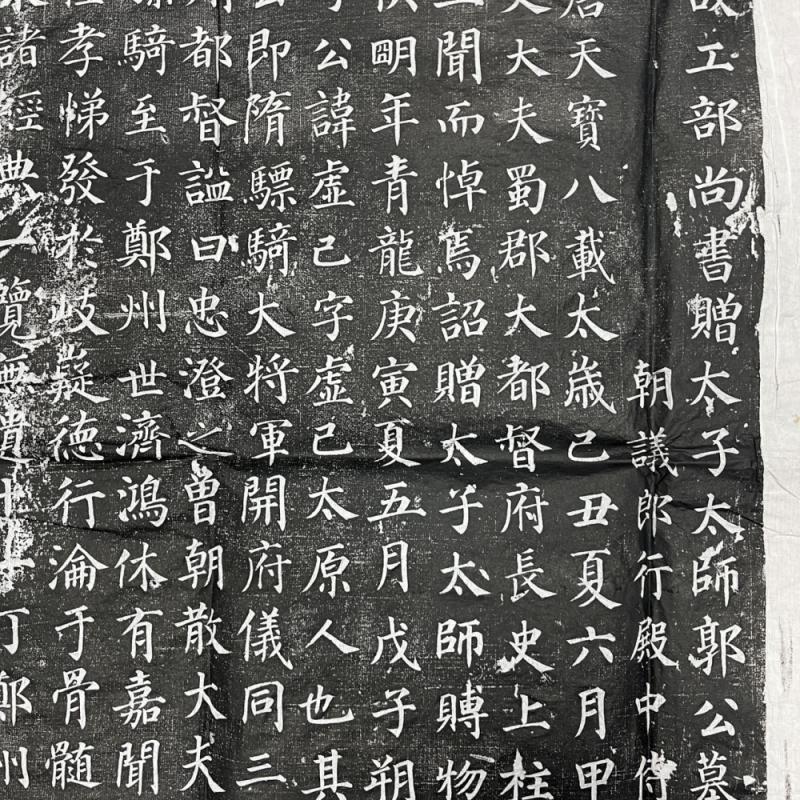 故工部尚書贈太子太師郭公墓
朝議郎行殿中侍
唐天寶八載太歲己丑夏六月甲
大夫蜀郡大都督府長史上柱
聞而悼焉詔贈太子太師賻物
朙年青龍庚寅夏五月戊子朔
公諱虛己字虛己太原人也其
即隋驃騎大將軍開府儀同三
都督謚曰忠澄之曾朝散大夫
騎至于鄭州世濟鴻休有嘉聞
孝悌發於岐嶷德行淪于骨髓
諸經典一覽無遺丁鄭州